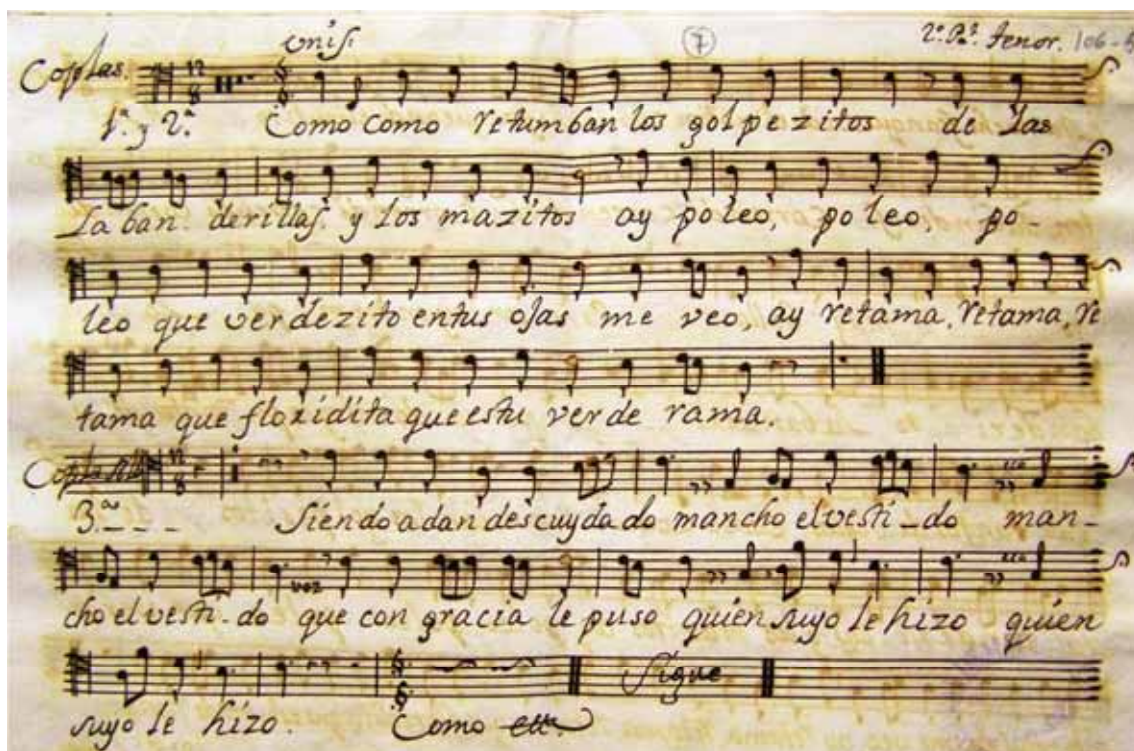 unis. 7 2º. Pº. tenor. 106-
Coplas.
1ª. y 2ª. Como como retumban los golpezitos de las
La ban. derillas. y los mazitos ay poleo, poleo, po
leo que verdezito entus ojas me veo, ay retama, retama, re
tama que floxidita que estu verde rama.
Copla
3ª Siendo adan descuydado mancho el vesti_do man_
voz
cho el vesti_do que con gracia le puso quien suyo le hizo quien
Sigue
suyo le hizo. Como etc.